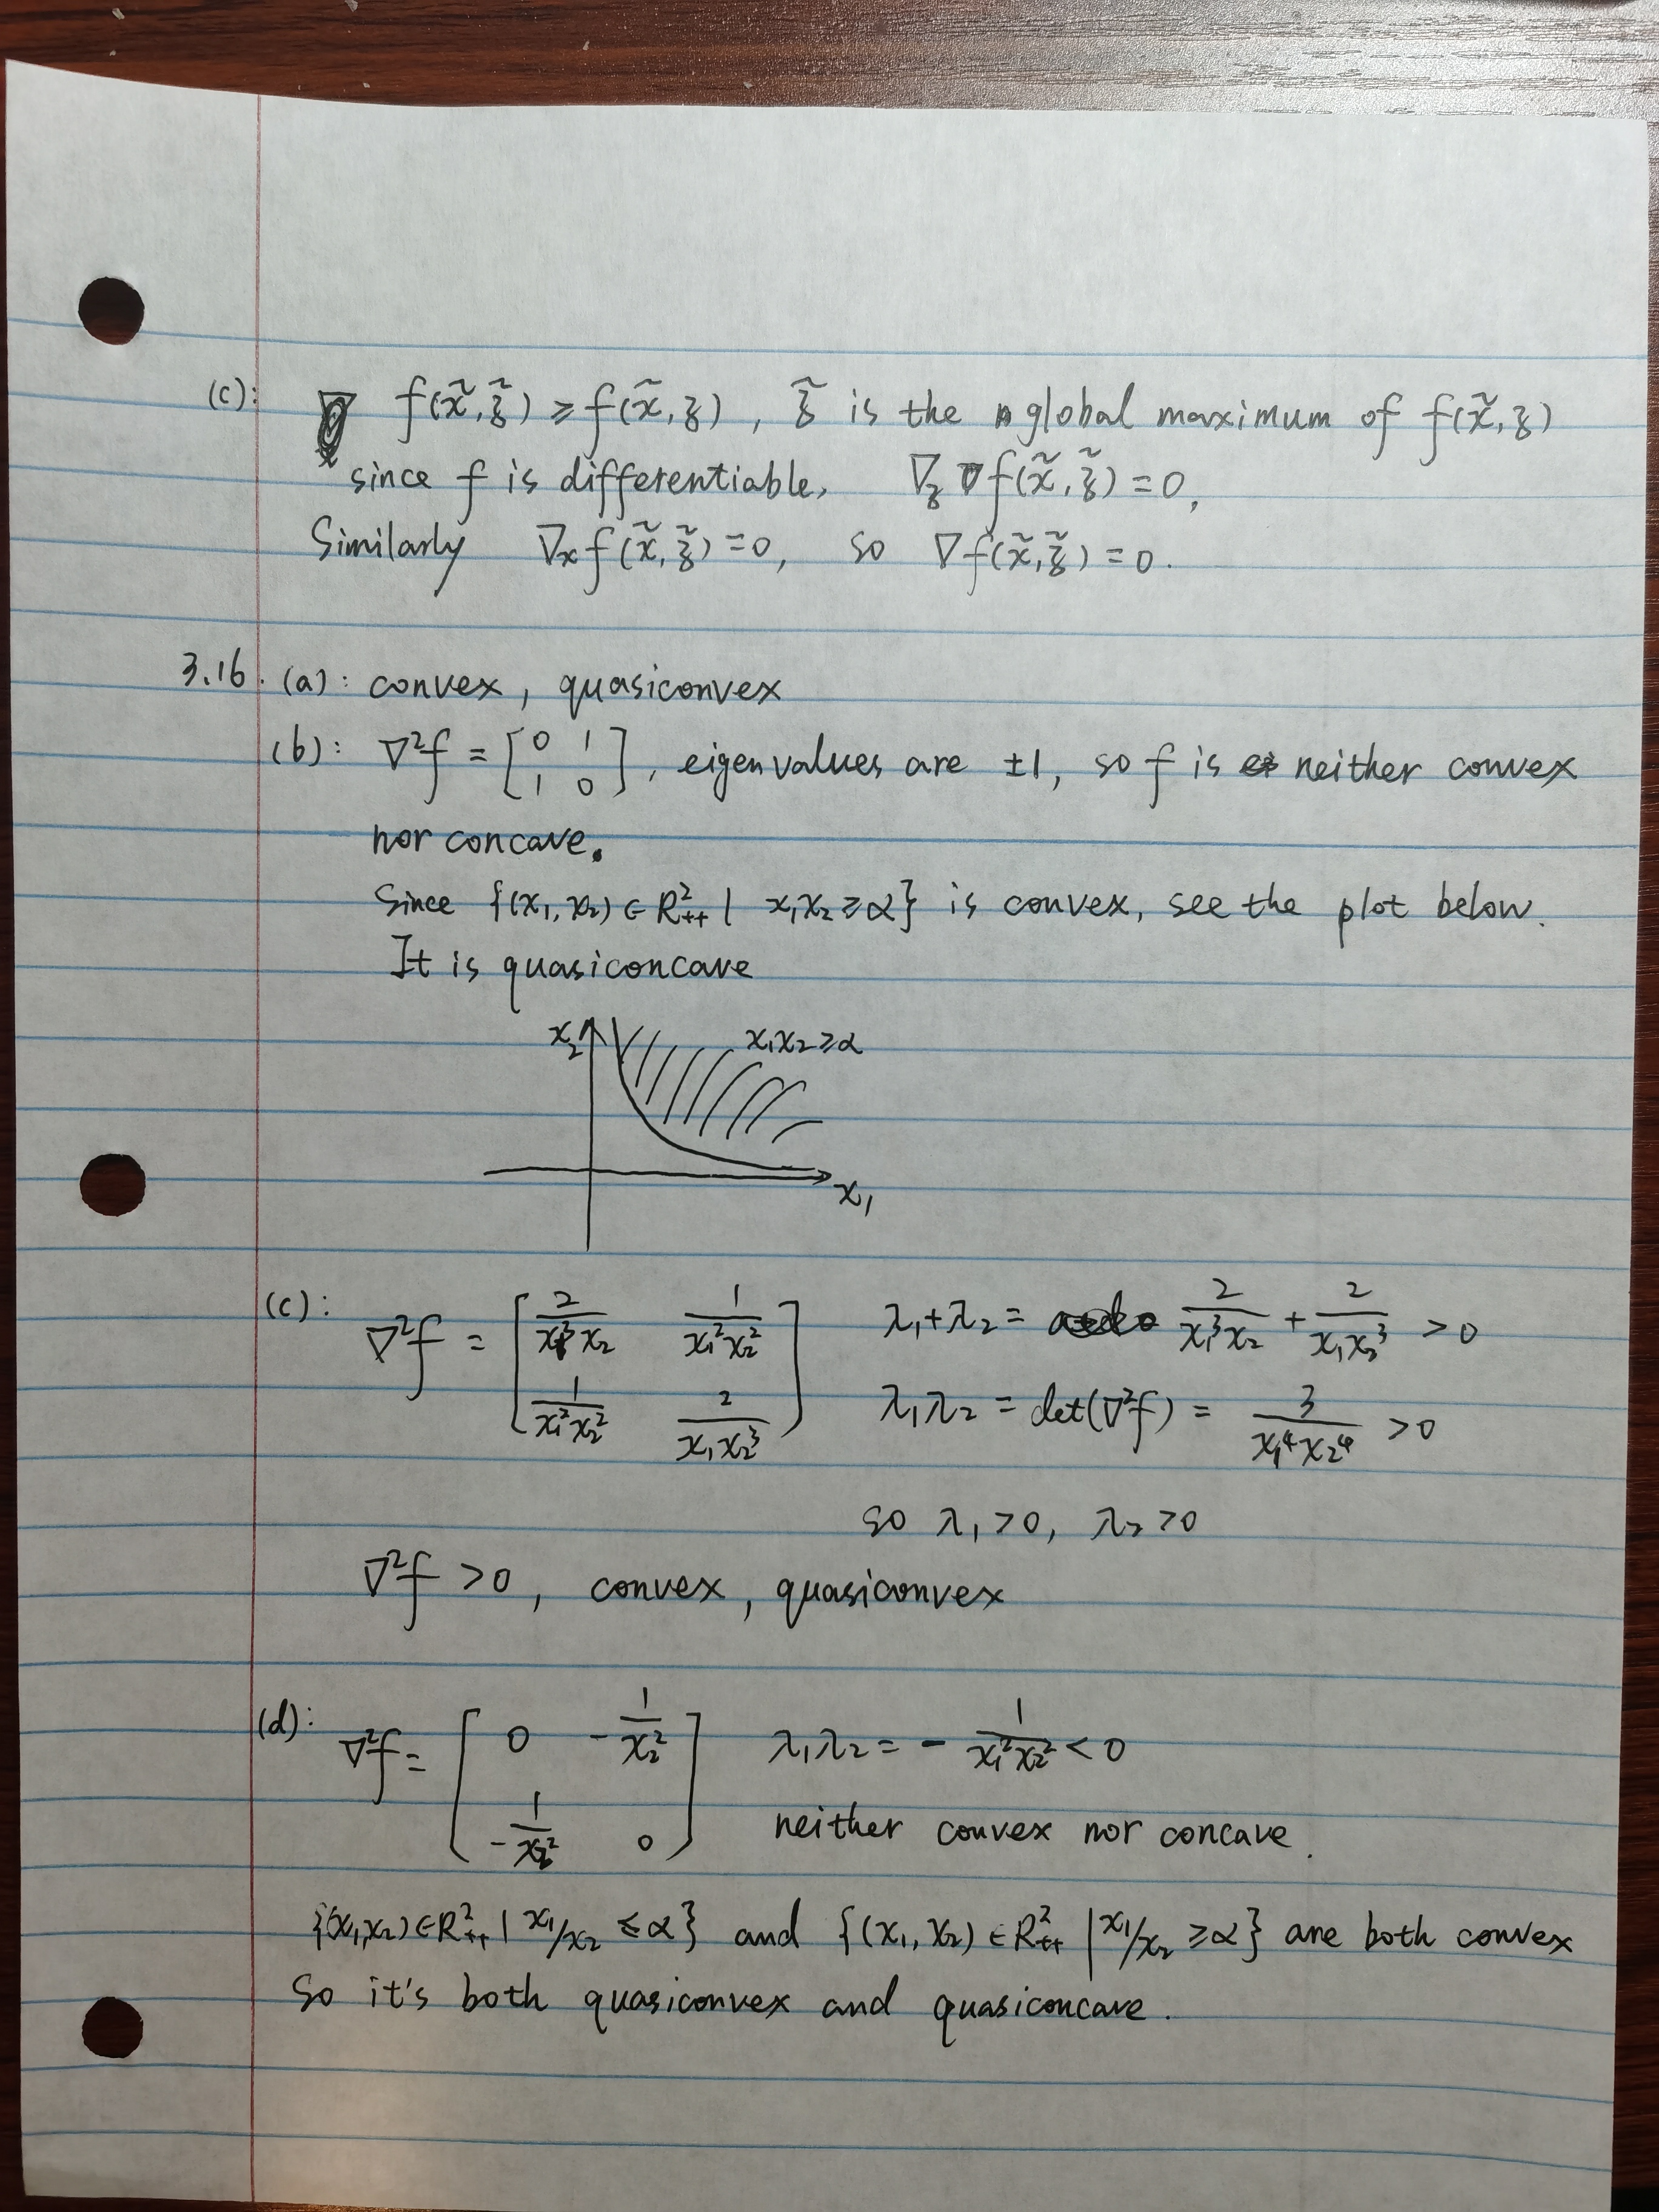 (c): ∇ f(x̃, z̃) ≥ f(x̃, z), z̃ is the global maximum of f(x̃, z)
since f is differentiable, ∇_z f(x̃, z̃) = 0,
Similarly ∇_x f(x̃, z̃) = 0, so ∇f(x̃, z̃) = 0.
3.16. (a): convex, quasiconvex
(b): ∇²f = [0 1; 1 0], eigenvalues are ±1, so f is neither convex
nor concave.
Since {(x₁, x₂) ∈ R²₊₊ | x₁x₂ ≥ α} is convex, see the plot below.
It is quasiconcave
x₂ x₁x₂ ≥ α
x₁
(c): ∇²f = [2/(x₁³x₂) 1/(x₁²x₂²); 1/(x₁²x₂²) 2/(x₁x₂³)] λ₁+λ₂ = 2/(x₁³x₂) + 2/(x₁x₂³) > 0
λ₁λ₂ = det(∇²f) = 3/(x₁⁴x₂⁴) > 0
so λ₁ > 0, λ₂ > 0
∇²f > 0, convex, quasiconvex
(d): ∇²f = [0 -1/x₂²; -1/x₂² 0] λ₁λ₂ = - 1/(x₁²x₂²) < 0
neither convex nor concave.
{(x₁,x₂) ∈ R²₊₊ | x₁/x₂ ≤ α} and {(x₁, x₂) ∈ R²₊₊ | x₁/x₂ ≥ α} are both convex
So it's both quasiconvex and quasiconcave.